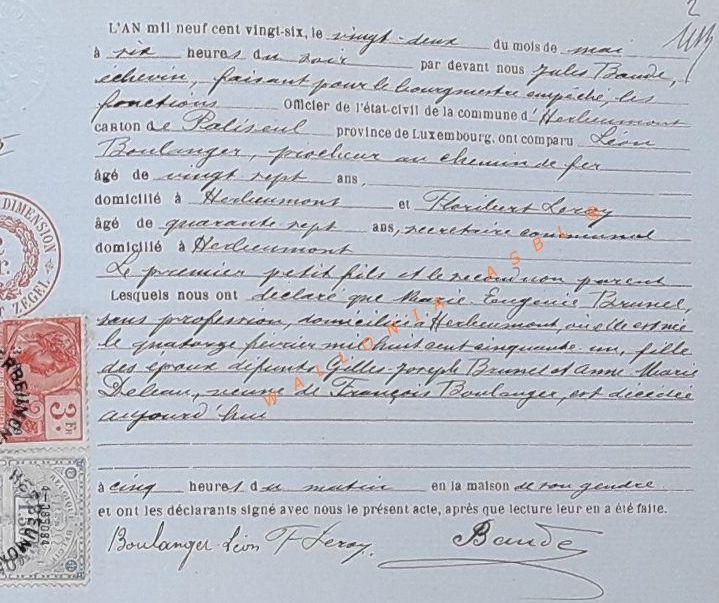 2
L'AN mil neuf cent vingt-six, le vingt-deux du mois de mai
à six heures du soir par devant nous Jules Baude,
echevin, faisant pour le bourgmestre empêché, les
fonctions Officier de l'état-civil de la commune d'Herbeumont
canton de Paliseul province de Luxembourg, ont comparu Léon
Boulanger, piocheur au chemin de fer
âgé de vingt sept ans,
domicilié à Herbeumont et Floribert Leroy
âgé de quarante sept ans, secretaire communal
domicilié à Herbeumont
Le premier petit fils et le second non parent
Lesquels nous ont déclaré que Marie Eugenie Brunel,
sans profession, domiciliée à Herbeumont, où elle est née
le quatorze fevrier mil huit cent cinquante-un, fille
des époux défunts Gilles-Joseph Brunel et Anne Marie
veuve de François Boulanger, est décédée
aujourd'hui
à cinq heures du matin en la maison de son gendre
et ont les déclarants signé avec nous le présent acte, après que lecture leur en a été faite.
Boulanger Léon F Leroy. Baude
DIMENSION
ZEGEL
3 Fr
WALLONIA ASBL ©